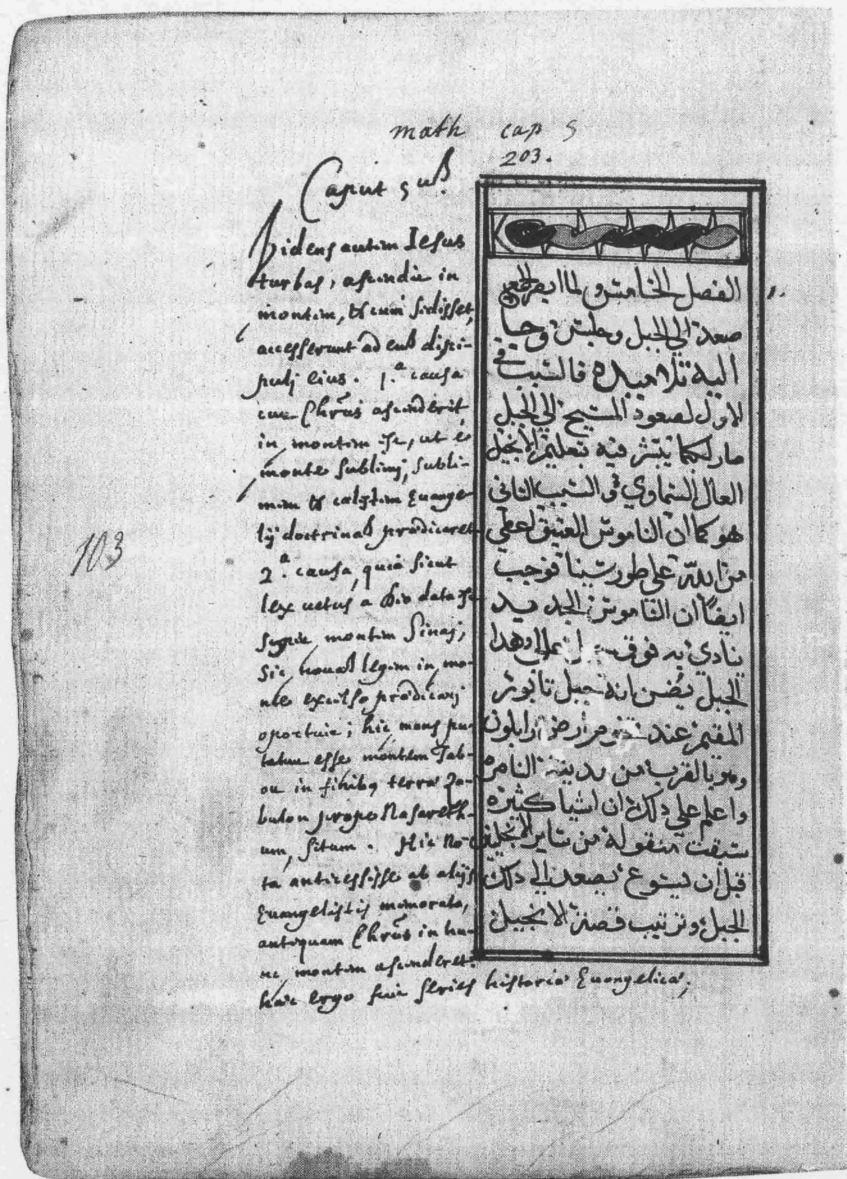 math cap 5
203.
Caput 5um.
Videns autem Iesus
turbas, ascendit in
montem, et cum sedisset,
accesserunt ad eum disci-
puli eius. 1.a causa
cur Chrūs ascenderit
in montem est, ut è
monte sublimi, subli-
mem et calestem Euange
lij doctrinam prædicaret
2.a causa, quia sicut
lex uetus a Deo data est
super montem Sinaj,
sic nouam legem in mo-
nte excelso prædicarj
oportuit; hic mons pu-
tatur esse montem Tab-
or in finibus terræ Za-
bulon prope Nazareth-
um, situm. Hic no-
ta antecessisse ab alijs
Euangelistis memorata,
antequam Chrūs in hu-
nc montem ascenderet.
hæc ergo fuit series historiæ Euangelicæ;
103
الفصل الخامس ولما ابصر الجمع
صعد الي الجبل وجلس وجا
اليه تلاميده فالسبب
الاول لصعود المسيح الي الجبل
كيما يبشر فيه بتعليم الانجيل
العال السماوي في السبب التاني
هو كما ان الناموس العتيق اعطي
من الله علي طور سينا فوجب
ايضًا ان الناموس الجديد
نادي به فوق جبل عالي وهدا
الجبل يُضن انه جبل تابور
المقيم عند تخوم ارض زابلون
وهو بالقرب من مدينة الناصرة
واعلم علي دلك ان اشيا كثيره
سبقت منقولة من ساير الانجيليين
قبل ان يسوع يصعد الي دلك
الجبل وترتيب قصة الانجيل